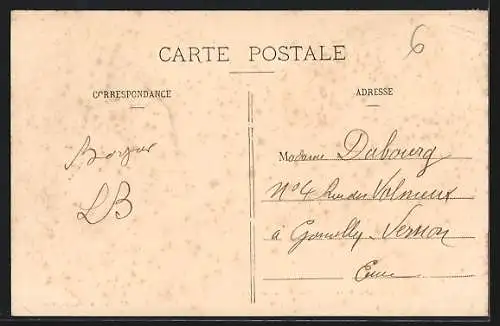 6
CARTE POSTALE
CORRESPONDANCE
ADRESSE
LB
Madame Dubourg
N° 4 Rue des
à Gamilly - Vernon
Eure